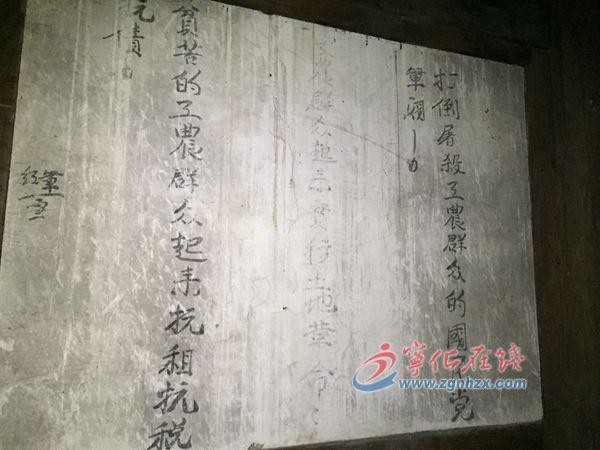 打倒屠殺工農群众的國民党
軍閥！
農群众起来實行土地革命
貧苦的工農群众起来抗租抗税
抗債！
紅軍
寧化在线
www.zgnhzx.com